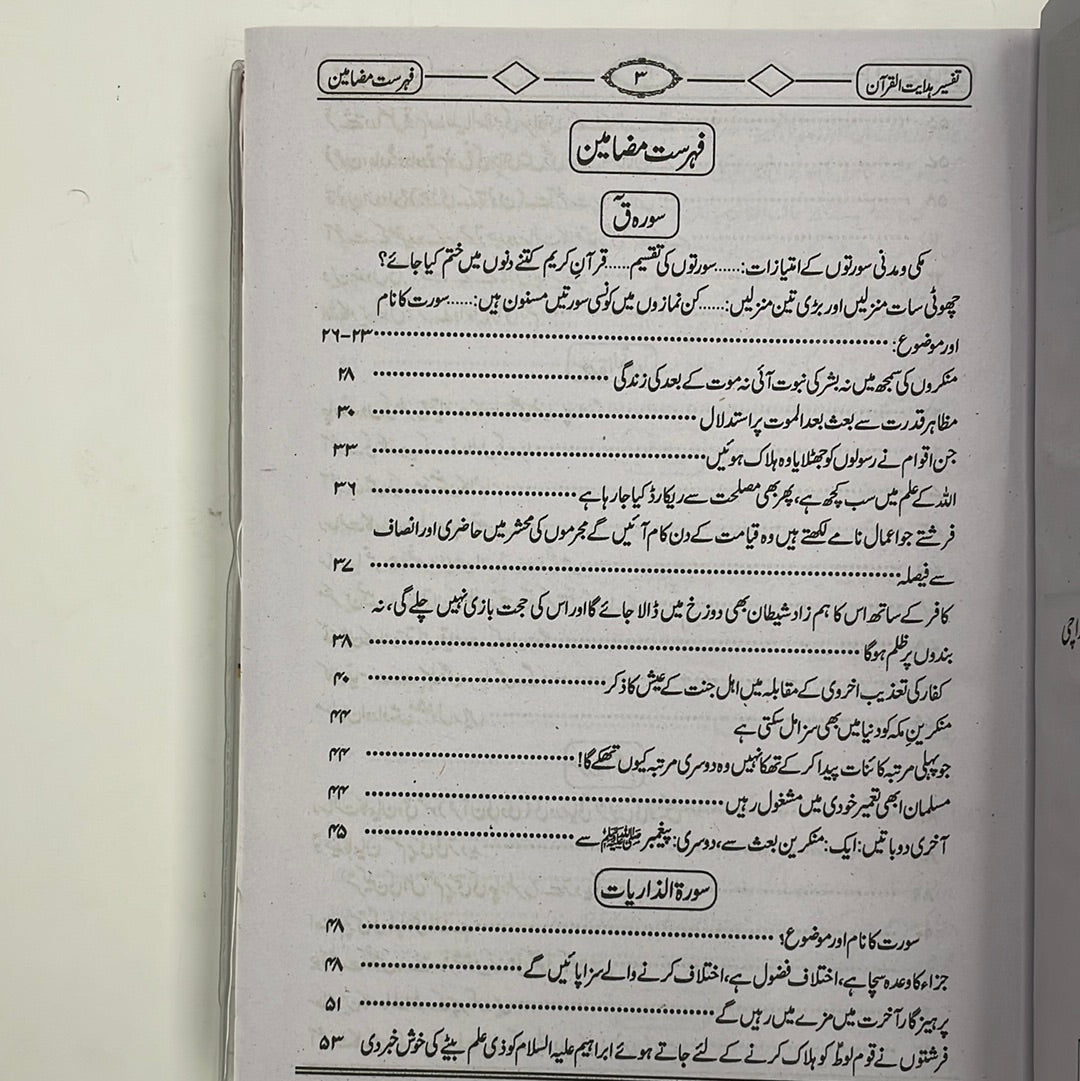 تفسیر ہدایت القرآن ۳ فہرست مضامین
فہرست مضامین
سورہ ق
مکی و مدنی سورتوں کے امتیازات:......سورتوں کی تقسیم......قرآنِ کریم کتنے دنوں میں ختم کیا جائے؟
چھوٹی سات منزلیں اور بڑی تین منزلیں:......کن نمازوں میں کونسی سورتیں مسنون ہیں:......سورت کا نام
اور موضوع: ۲۳-۲۶
منکروں کی سمجھ میں نہ بشر کی نبوت آئی نہ موت کے بعد کی زندگی ۲۸
مظاہر قدرت سے بعث بعد الموت پر استدلال ۳۰
جن اقوام نے رسولوں کو جھٹلایا وہ ہلاک ہوئیں ۳۳
اللہ کے علم میں سب کچھ ہے، پھر بھی مصلحت سے ریکارڈ کیا جا رہا ہے ۳۶
فرشتے جو اعمال نامے لکھتے ہیں وہ قیامت کے دن کام آئیں گے مجرموں کی محشر میں حاضری اور انصاف
سے فیصلہ ۳۷
کافر کے ساتھ اس کا ہم زاد شیطان بھی دوزخ میں ڈالا جائے گا اور اس کی حجت بازی نہیں چلے گی، نہ
بندوں پر ظلم ہوگا ۳۸
کفار کی تعذیب اخروی کے مقابلہ میں اہل جنت کے عیش کا ذکر ۴۰
منکرینِ مکہ کو دنیا میں بھی سزا مل سکتی ہے ۴۴
جو پہلی مرتبہ کائنات پیدا کر کے تھکا نہیں وہ دوسری مرتبہ کیوں تھکے گا! ۴۴
مسلمان ابھی تعمیر خودی میں مشغول رہیں ۴۴
آخری دو باتیں: ایک: منکرین بعث سے، دوسری: پیغمبر ﷺ سے ۴۵
سورۃ الذاریات
سورت کا نام اور موضوع: ۴۸
جزاء کا وعدہ سچا ہے، اختلاف فضول ہے، اختلاف کرنے والے سزا پائیں گے ۴۸
پرہیزگار آخرت میں مزے میں رہیں گے ۵۱
فرشتوں نے قوم لوطؑ کو ہلاک کرنے کے لئے جاتے ہوئے ابراہیم علیہ السلام کو ذی علم بیٹے کی خوش خبری دی ۵۳